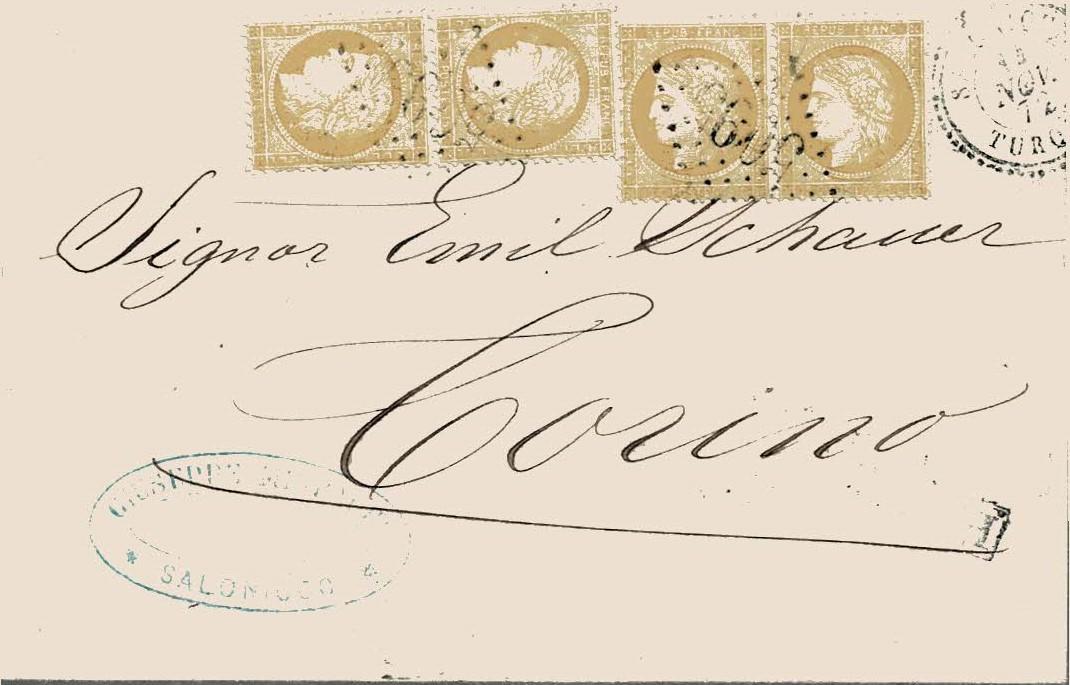 REPUB·FRANC
REPUB·FRANC
NOV.
74
TURQ
Signor Emil Schauer
Torino
GIUSEPPE
* SALONICCO *